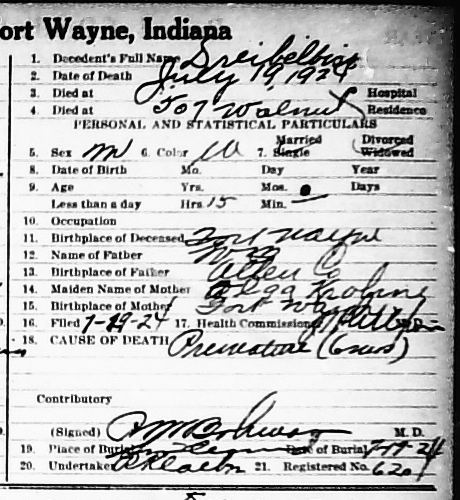 ort Wayne, Indiana
1. Decedent's Full Name Dreibelbiss
2. Date of Death July 19, 1924
3. Died at Hospital
4. Died at 707 Walnut Residence
PERSONAL AND STATISTICAL PARTICULARS
5. Sex M 6. Color W 7. Married Single Divorced Widowed
8. Date of Birth Mo. Day Year
9. Age Yrs. Mos. Days
Less than a day Hrs 15 Min. —
10. Occupation
11. Birthplace of Deceased Fort Wayne
12. Name of Father Wm
13. Birthplace of Father Allen Co
14. Maiden Name of Mother
15. Birthplace of Mother Fort Wa
16. Filed 7-29-24 17. Health Commissioner
18. CAUSE OF DEATH Premature (6 mos)
Contributory
(Signed) M. D.
19. Place of Burial Date of Burial
20. Undertaker 21. Registered No. 620